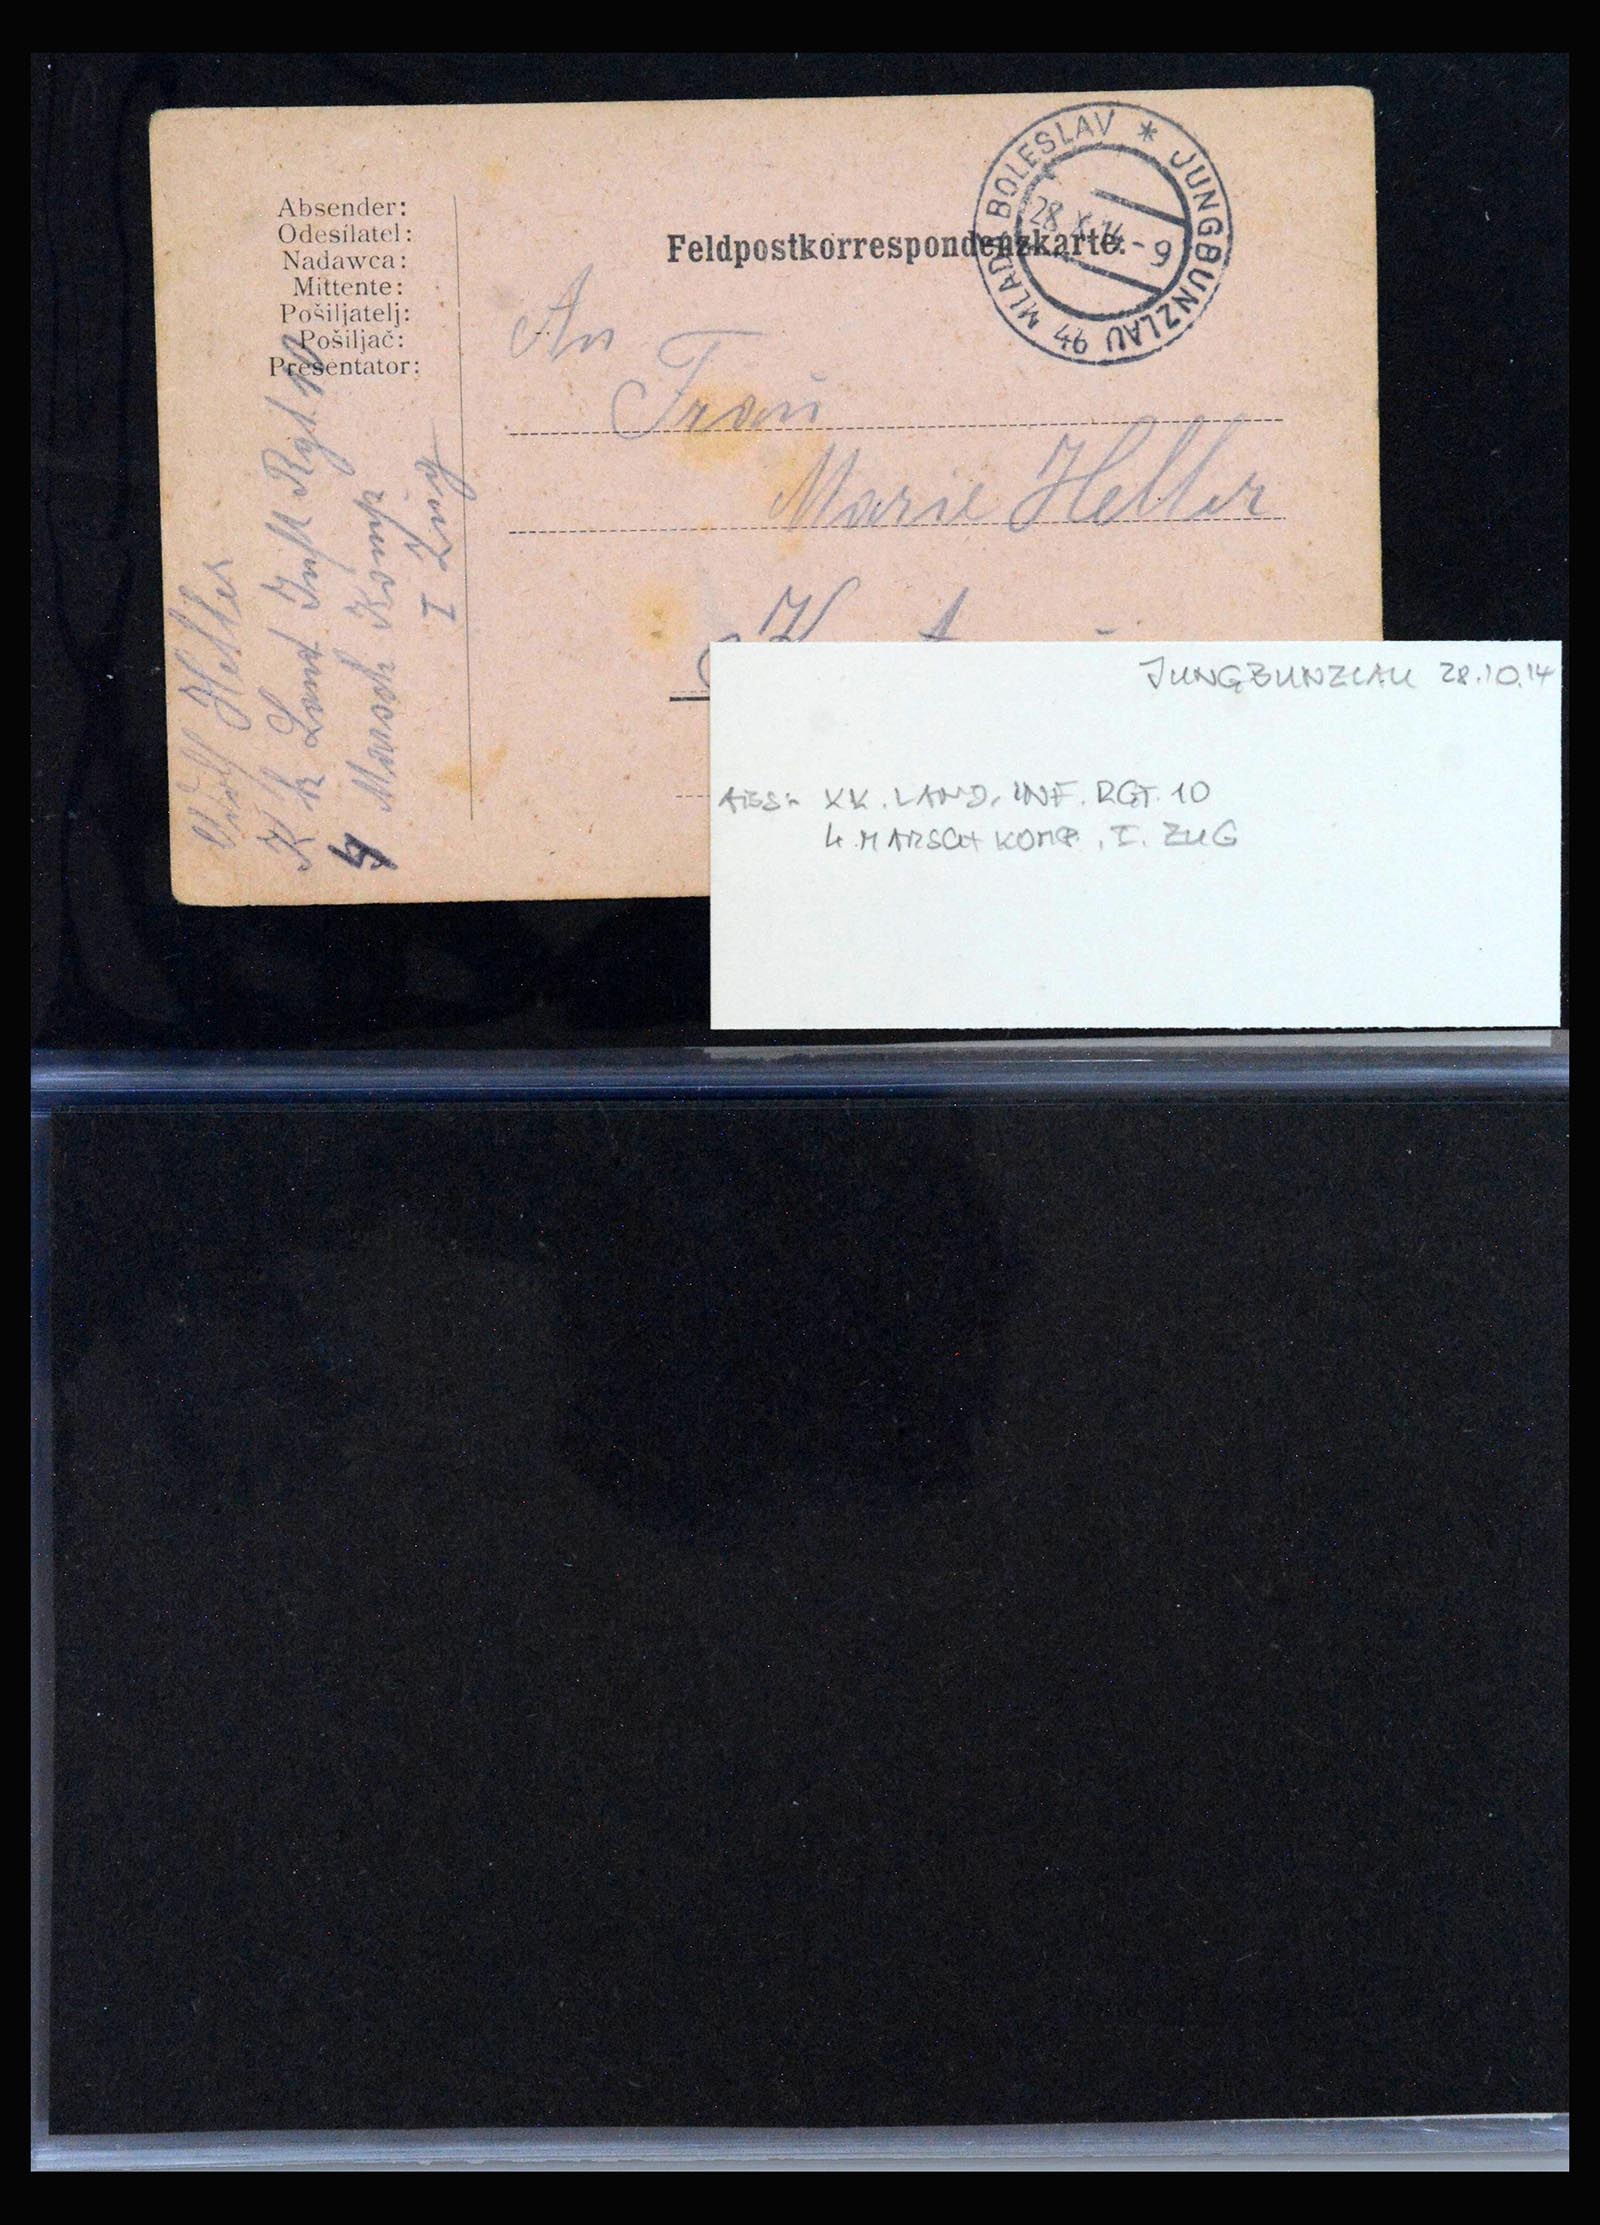 Absender:
Odesílatel:
Nadawca:
Mittente:
Pošiljatelj:
Pošiljač:
Presentator:
Feldpostkorrespondenzkarte.
MLADÁ BOLESLAV * JUNGBUNZLAU
28 X 14 - 9
An
Frau
Marie Heller
Heller
4
Marsch Komp.
I Zug
JUNGBUNZLAU 28.10.14
ABS:- KK. LAND. INF. RGT. 10
4. MARSCH KOMP., I. ZUG